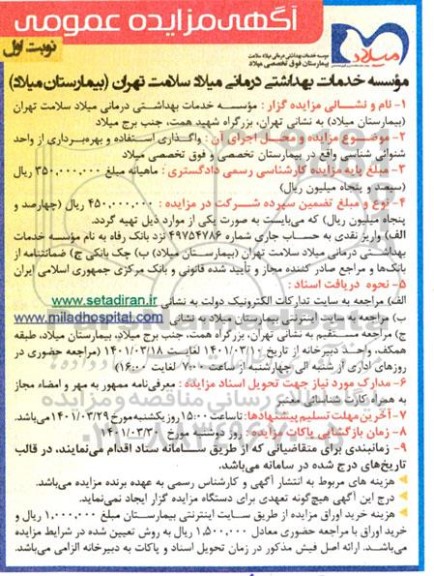 آگهی مزایده عمومی
نوبت اول
میلاد
موسسه خدمات بهداشتی درمانی میلاد سلامت
بیمارستان فوق تخصصی میلاد
مؤسسه خدمات بهداشتی درمانی میلاد سلامت تهران (بیمارستان میلاد)
۱- نام و نشانی مزایده گزار : مؤسسه خدمات بهداشتی درمانی میلاد سلامت تهران
(بیمارستان میلاد) به نشانی تهران، بزرگراه شهید همت، جنب برج میلاد
۲- موضوع مزایده و محل اجرای آن : واگذاری استفاده و بهره‌برداری از واحد
شنوائی شناسی واقع در بیمارستان تخصصی و فوق تخصصی میلاد
۳- مبلغ پایه مزایده کارشناسی رسمی دادگستری : ماهیانه مبلغ ۳۵۰,۰۰۰,۰۰۰ ریال
(سیصد و پنجاه میلیون ریال)
۴- نوع و مبلغ تضمین سپرده شرکت در مزایده : ۴۵۰,۰۰۰,۰۰۰ ریال (چهارصد و
پنجاه میلیون ریال) که می‌بایست به صورت یکی از موارد ذیل تهیه گردد.
الف) واریز نقدی به حساب جاری شماره ۴۹۷۵۴۷۸۶ نزد بانک رفاه به نام مؤسسه خدمات
بهداشتی درمانی میلاد سلامت تهران (بیمارستان میلاد) ب) چک بانکی ج) ضمانتنامه از
بانک‌ها و مراجع صادر کننده مجاز و تأیید شده قانونی و بانک مرکزی جمهوری اسلامی ایران
۵- نحوه دریافت اسناد :
الف) مراجعه به سایت تدارکات الکترونیک دولت به نشانی www.setadiran.ir
ب) مراجعه به سایت اینترنتی بیمارستان میلاد به نشانی www.miladhospital.com
ج) مراجعه مستقیم به نشانی تهران، بزرگراه همت، جنب برج میلاد، بیمارستان میلاد، طبقه
همکف، واحد دبیرخانه از تاریخ ۱۴۰۱/۰۳/۱۰ لغایت ۱۴۰۱/۰۳/۱۸ (مراجعه حضوری در
روزهای اداری از شنبه الی چهارشنبه از ساعت ۰۷:۰۰ لغایت ۱۶:۰۰)
۶- مدارک مورد نیاز جهت تحویل اسناد مزایده : معرفی‌نامه ممهور به مهر و امضاء مجاز
به همراه کارت شناسائی معتبر
۷- آخرین مهلت تسلیم پیشنهادها: تا ساعت ۱۵:۰۰ روز یکشنبه مورخ ۱۴۰۱/۰۳/۲۹ می‌باشد.
۸- زمان بازگشایی پاکات مزایده : روز دوشنبه مورخ ۱۴۰۱/۰۳/۳۰
۹- زمانبندی برای متقاضیانی که از طریق سامانه ستاد اقدام می‌نمایند، در قالب
تاریخ‌های درج شده در سامانه می‌باشد.
هزینه های مربوط به انتشار آگهی و کارشناس رسمی به عهده برنده مزایده می‌باشد.
درج این آگهی هیچ‌گونه تعهدی برای دستگاه مزایده گزار ایجاد نمی‌نماید.
هزینه خرید اوراق مزایده از طریق سایت اینترنتی بیمارستان مبلغ ۱,۰۰۰,۰۰۰ ریال و
خرید اوراق با مراجعه حضوری معادل ۱,۵۰۰,۰۰۰ ریال به روش تعیین شده در شرایط مزایده
می‌باشد. ارائه اصل فیش مذکور در زمان تحویل اسناد و پاکات به دبیرخانه الزامی می‌باشد.